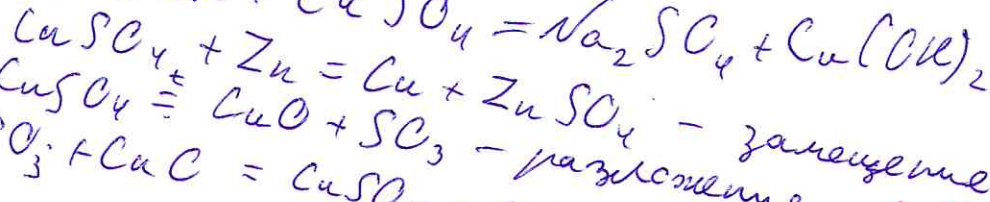 CuSO₄ = Na₂SO₄ + Cu(OH)₂
CuSO₄ + Zn = Cu + ZnSO₄ - замещение
CuSO₄ = CuO + SO₃ - разложени
O₃ + CuO = CuSO